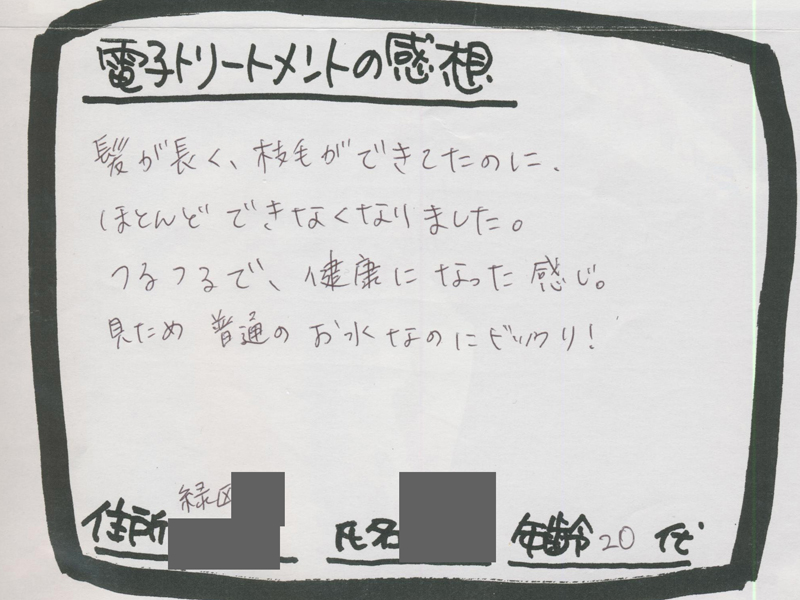 電子トリートメントの感想
髪が長く、枝毛ができてたのに、
ほとんどできなくなりました。
つるつるで、健康になった感じ。
見ため普通のお水なのにビックリ!
緑区
住所 氏名 年齢 20代